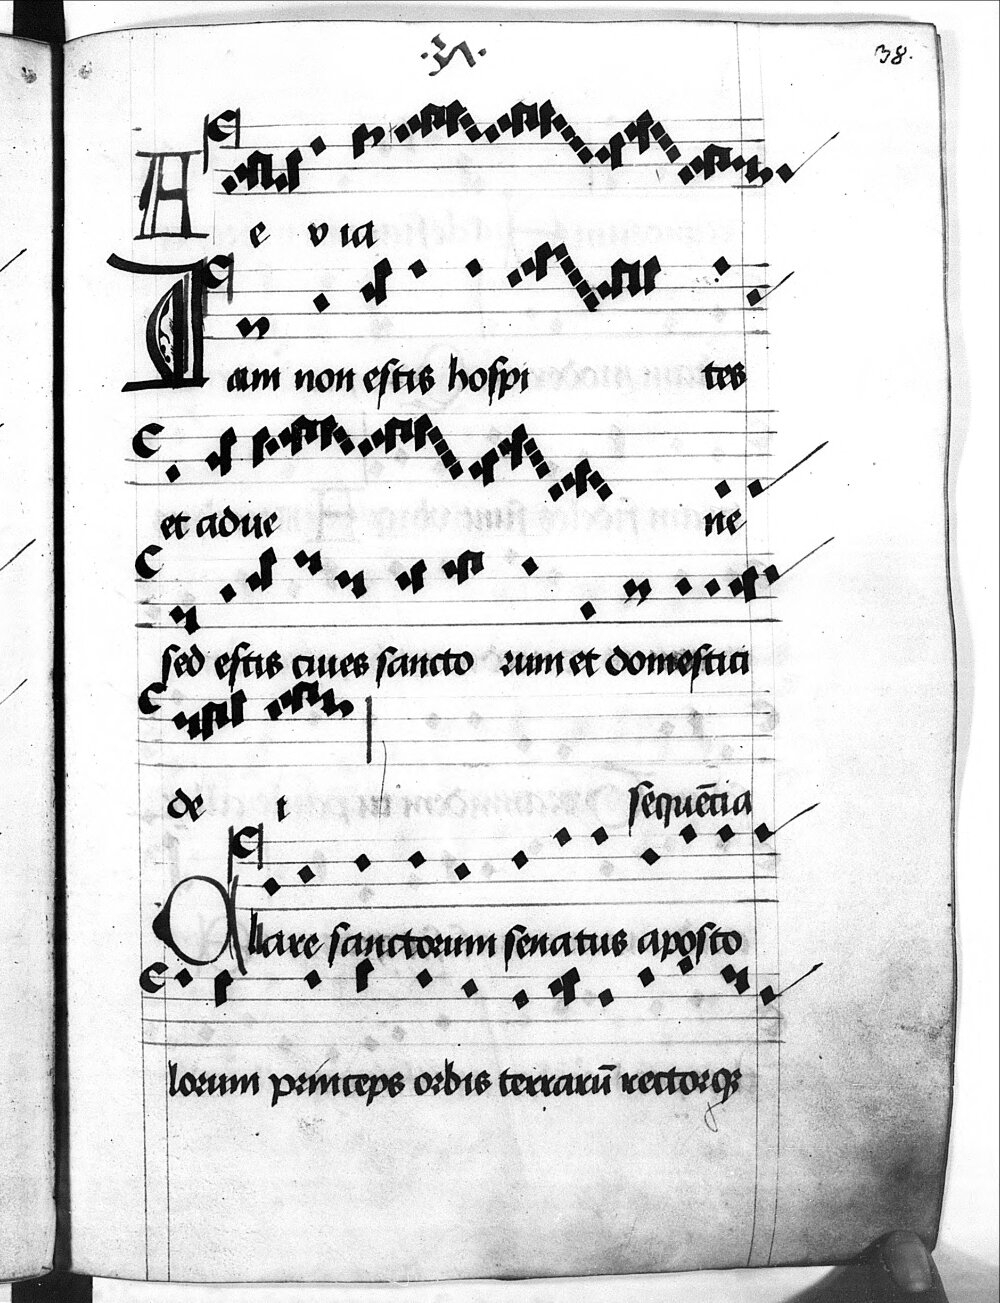 38.
A e v ia
Iam non estis hospi tes
et adve ne
sed estis cives sancto rum et domestici
de i sequēcia
Clare sanctorum senatus aposto
lorum princeps orbis terrarū rectorq;